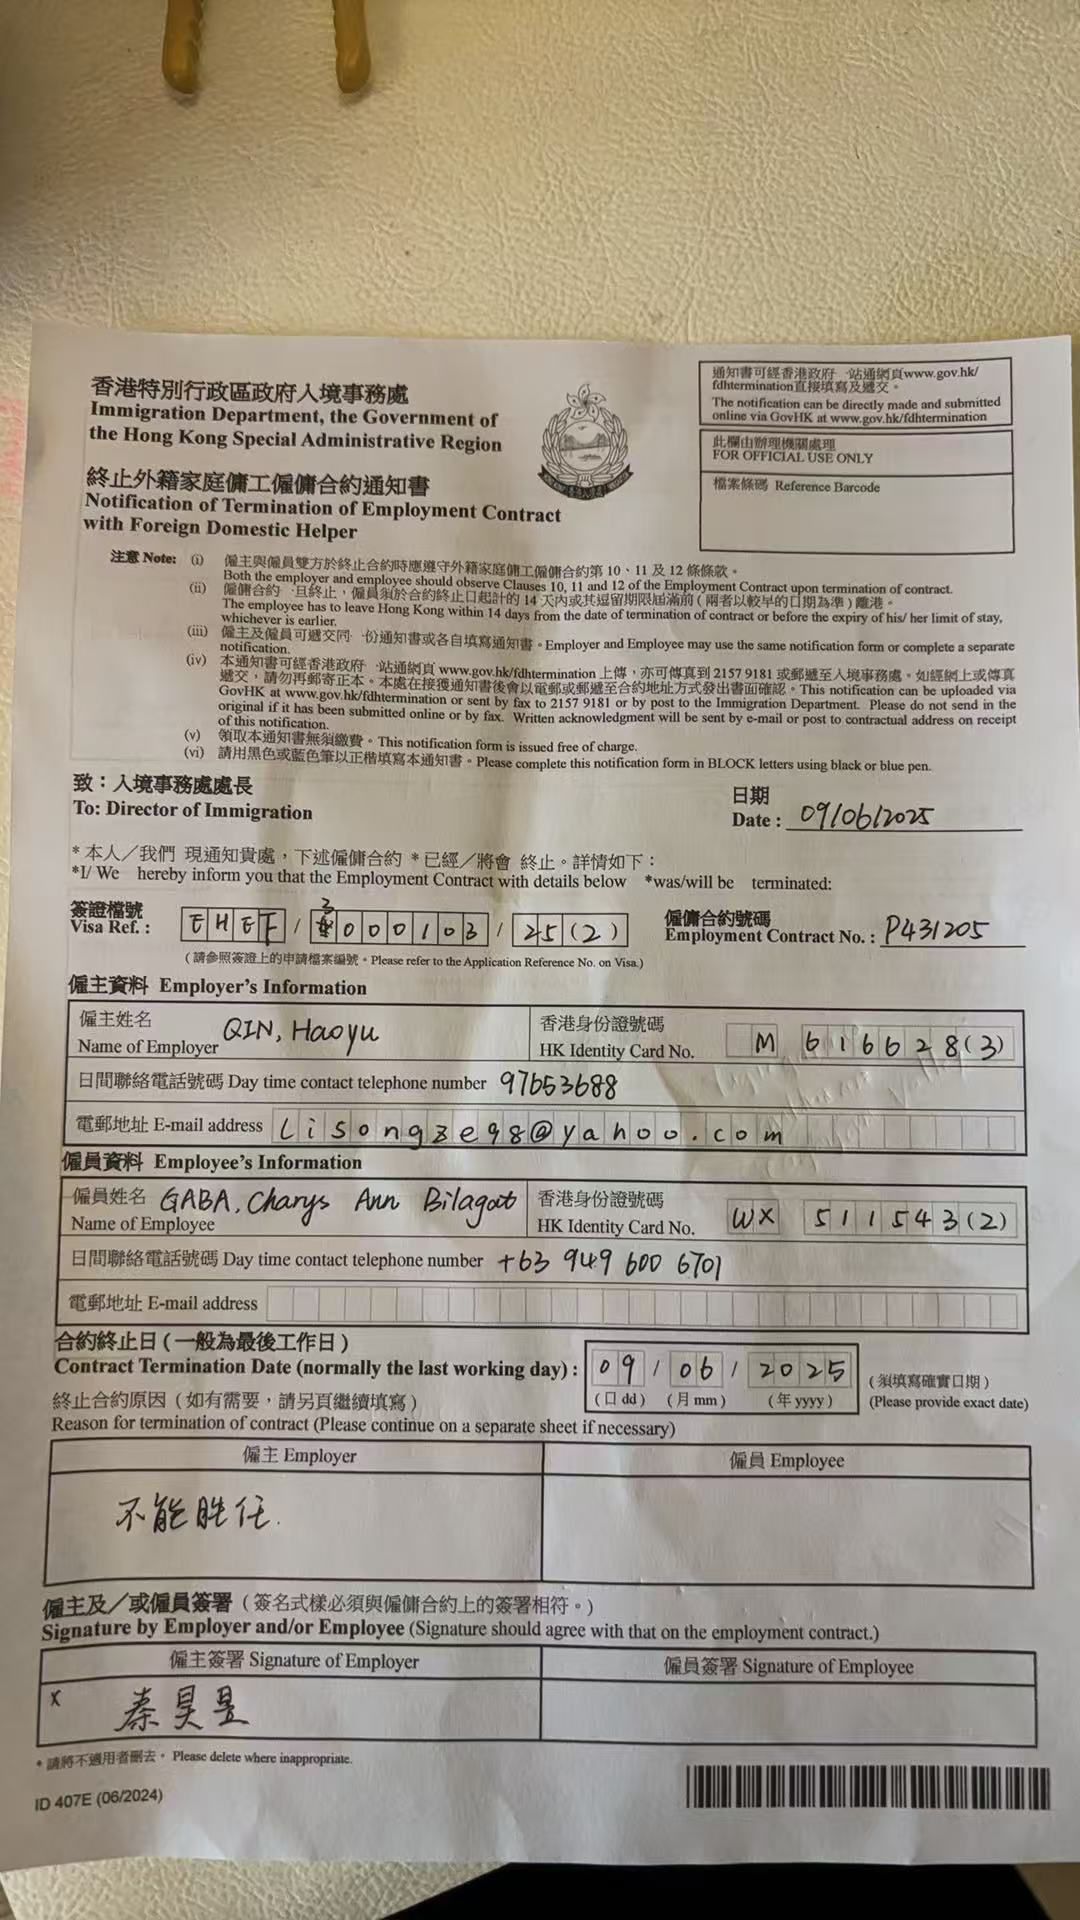 香港特別行政區政府入境事務處
Immigration Department, the Government of
the Hong Kong Special Administrative Region
終止外籍家庭傭工僱傭合約通知書
Notification of Termination of Employment Contract
with Foreign Domestic Helper
通知書可經香港政府一站通網頁www.gov.hk/
fdhtermination直接填寫及遞交。
The notification can be directly made and submitted
online via GovHK at www.gov.hk/fdhtermination
此欄由辦理機關處理
FOR OFFICIAL USE ONLY
檔案條碼 Reference Barcode
注意 Note: (i) 僱主與僱員雙方於終止合約時應遵守外籍家庭傭工僱傭合約第 10、11 及 12 條條款。
Both the employer and employee should observe Clauses 10, 11 and 12 of the Employment Contract upon termination of contract.
(ii) 僱傭合約一旦終止，僱員須於合約終止日起計的 14 天內或其逗留期限屆滿前（兩者以較早的日期為準）離港。
The employee has to leave Hong Kong within 14 days from the date of termination of contract or before the expiry of his/ her limit of stay,
whichever is earlier.
(iii) 僱主及僱員可遞交同一份通知書或各自填寫通知書。Employer and Employee may use the same notification form or complete a separate
notification.
(iv) 本通知書可經香港政府一站通網頁 www.gov.hk/fdhtermination 上傳，亦可傳真到 2157 9181 或郵遞至入境事務處。如經網上或傳真
遞交，請勿再郵寄正本。本處在接獲通知書後會以電郵或郵遞至合約地址方式發出書面確認。This notification can be uploaded via
GovHK at www.gov.hk/fdhtermination or sent by fax to 2157 9181 or by post to the Immigration Department. Please do not send in the
original if it has been submitted online or by fax. Written acknowledgment will be sent by e-mail or post to contractual address on receipt
of this notification.
(v) 領取本通知書無須繳費。This notification form is issued free of charge.
(vi) 請用黑色或藍色筆以正楷填寫本通知書。Please complete this notification form in BLOCK letters using black or blue pen.
致：入境事務處處長
To: Director of Immigration
日期
Date : 09/06/2025
* 本人／我們 現通知貴處，下述僱傭合約 * 已經／將會 終止。詳情如下：
*I/ We hereby inform you that the Employment Contract with details below *was/will be terminated:
簽證檔號
Visa Ref. : EHEF / 3000103 / 25(2)
僱傭合約號碼
Employment Contract No. : P431205
（請參照簽證上的申請檔案編號。Please refer to the Application Reference No. on Visa.)
僱主資料 Employer's Information
僱主姓名
Name of Employer QIN, Haoyu
香港身份證號碼
HK Identity Card No. M 616628(3)
日間聯絡電話號碼 Day time contact telephone number 97653688
電郵地址 E-mail address Lisongze98@yahoo.com
僱員資料 Employee's Information
僱員姓名
Name of Employee GABA, Charys Ann Bilagot
香港身份證號碼
HK Identity Card No. WX 511543(2)
日間聯絡電話號碼 Day time contact telephone number +63 949 600 6701
電郵地址 E-mail address
合約終止日（一般為最後工作日）
Contract Termination Date (normally the last working day) : 09 / 06 / 2025
（日 dd） （月 mm） （年 yyyy）
（須填寫確實日期）
(Please provide exact date)
終止合約原因（如有需要，請另頁繼續填寫）
Reason for termination of contract (Please continue on a separate sheet if necessary)
僱主 Employer
僱員 Employee
不能胜任.
僱主及／或僱員簽署（簽名式樣必須與僱傭合約上的簽署相符。）
Signature by Employer and/or Employee (Signature should agree with that on the employment contract.)
僱主簽署 Signature of Employer
僱員簽署 Signature of Employee
x 秦昊昱
* 請將不適用者刪去。 Please delete where inappropriate.
ID 407E (06/2024)